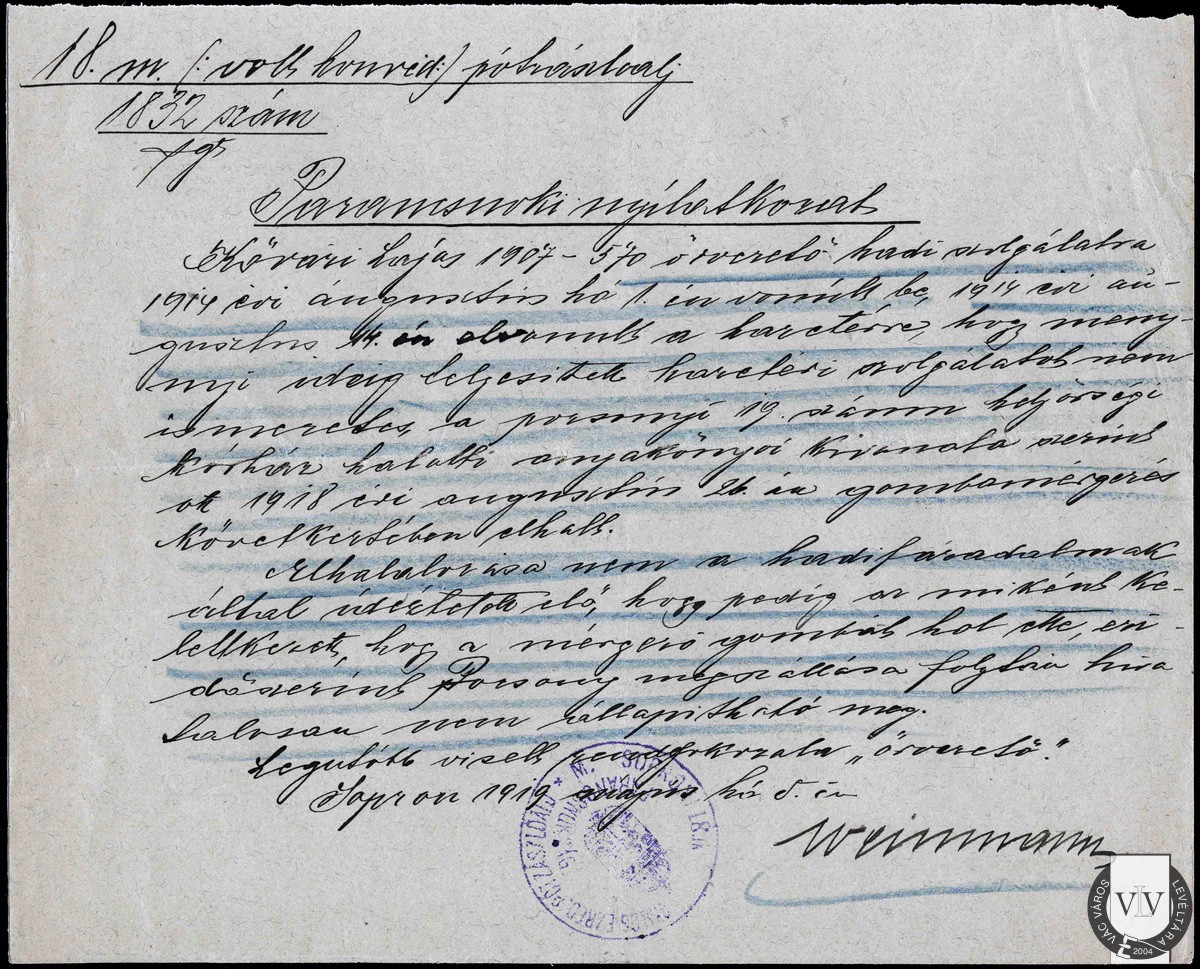 18. m. (: volt honvéd :) pótzászlóalj
1832 szám
Parancsnoki nyilatkozat
Kővári Lajos 1907 – 570 őrvezető hadi szolgálatra
1914 évi augusztus hó 1. én vonúlt be, 1914 évi au-
gusztus 14. én elvonult a harctérre, hogy meny-
nyi ideig teljesitett harctéri szolgálatot nem
ismeretes, a pozsonyi 19. számu helyőrségi
kórház halotti anyakönyvi kivonata szerint
ot 1918 évi augusztus 26. án gombamérgezés
következtében elhalt.
Elhalálozása nem a hadifáradalmak
által idéztetett elő, hogy pedig az miként ke-
letkezett, hogy a mérgező gombát hol ette, ezi-
dőszerint Pozsony megszállása folytán hiva
talosan nem állapitható meg.
Legutóbb viselt rendfokozata „őrvezető".
Sopron 1919 május hó 5. én
Weinmann
VÁC VÁROS LEVÉLTÁRA
VLV
2004